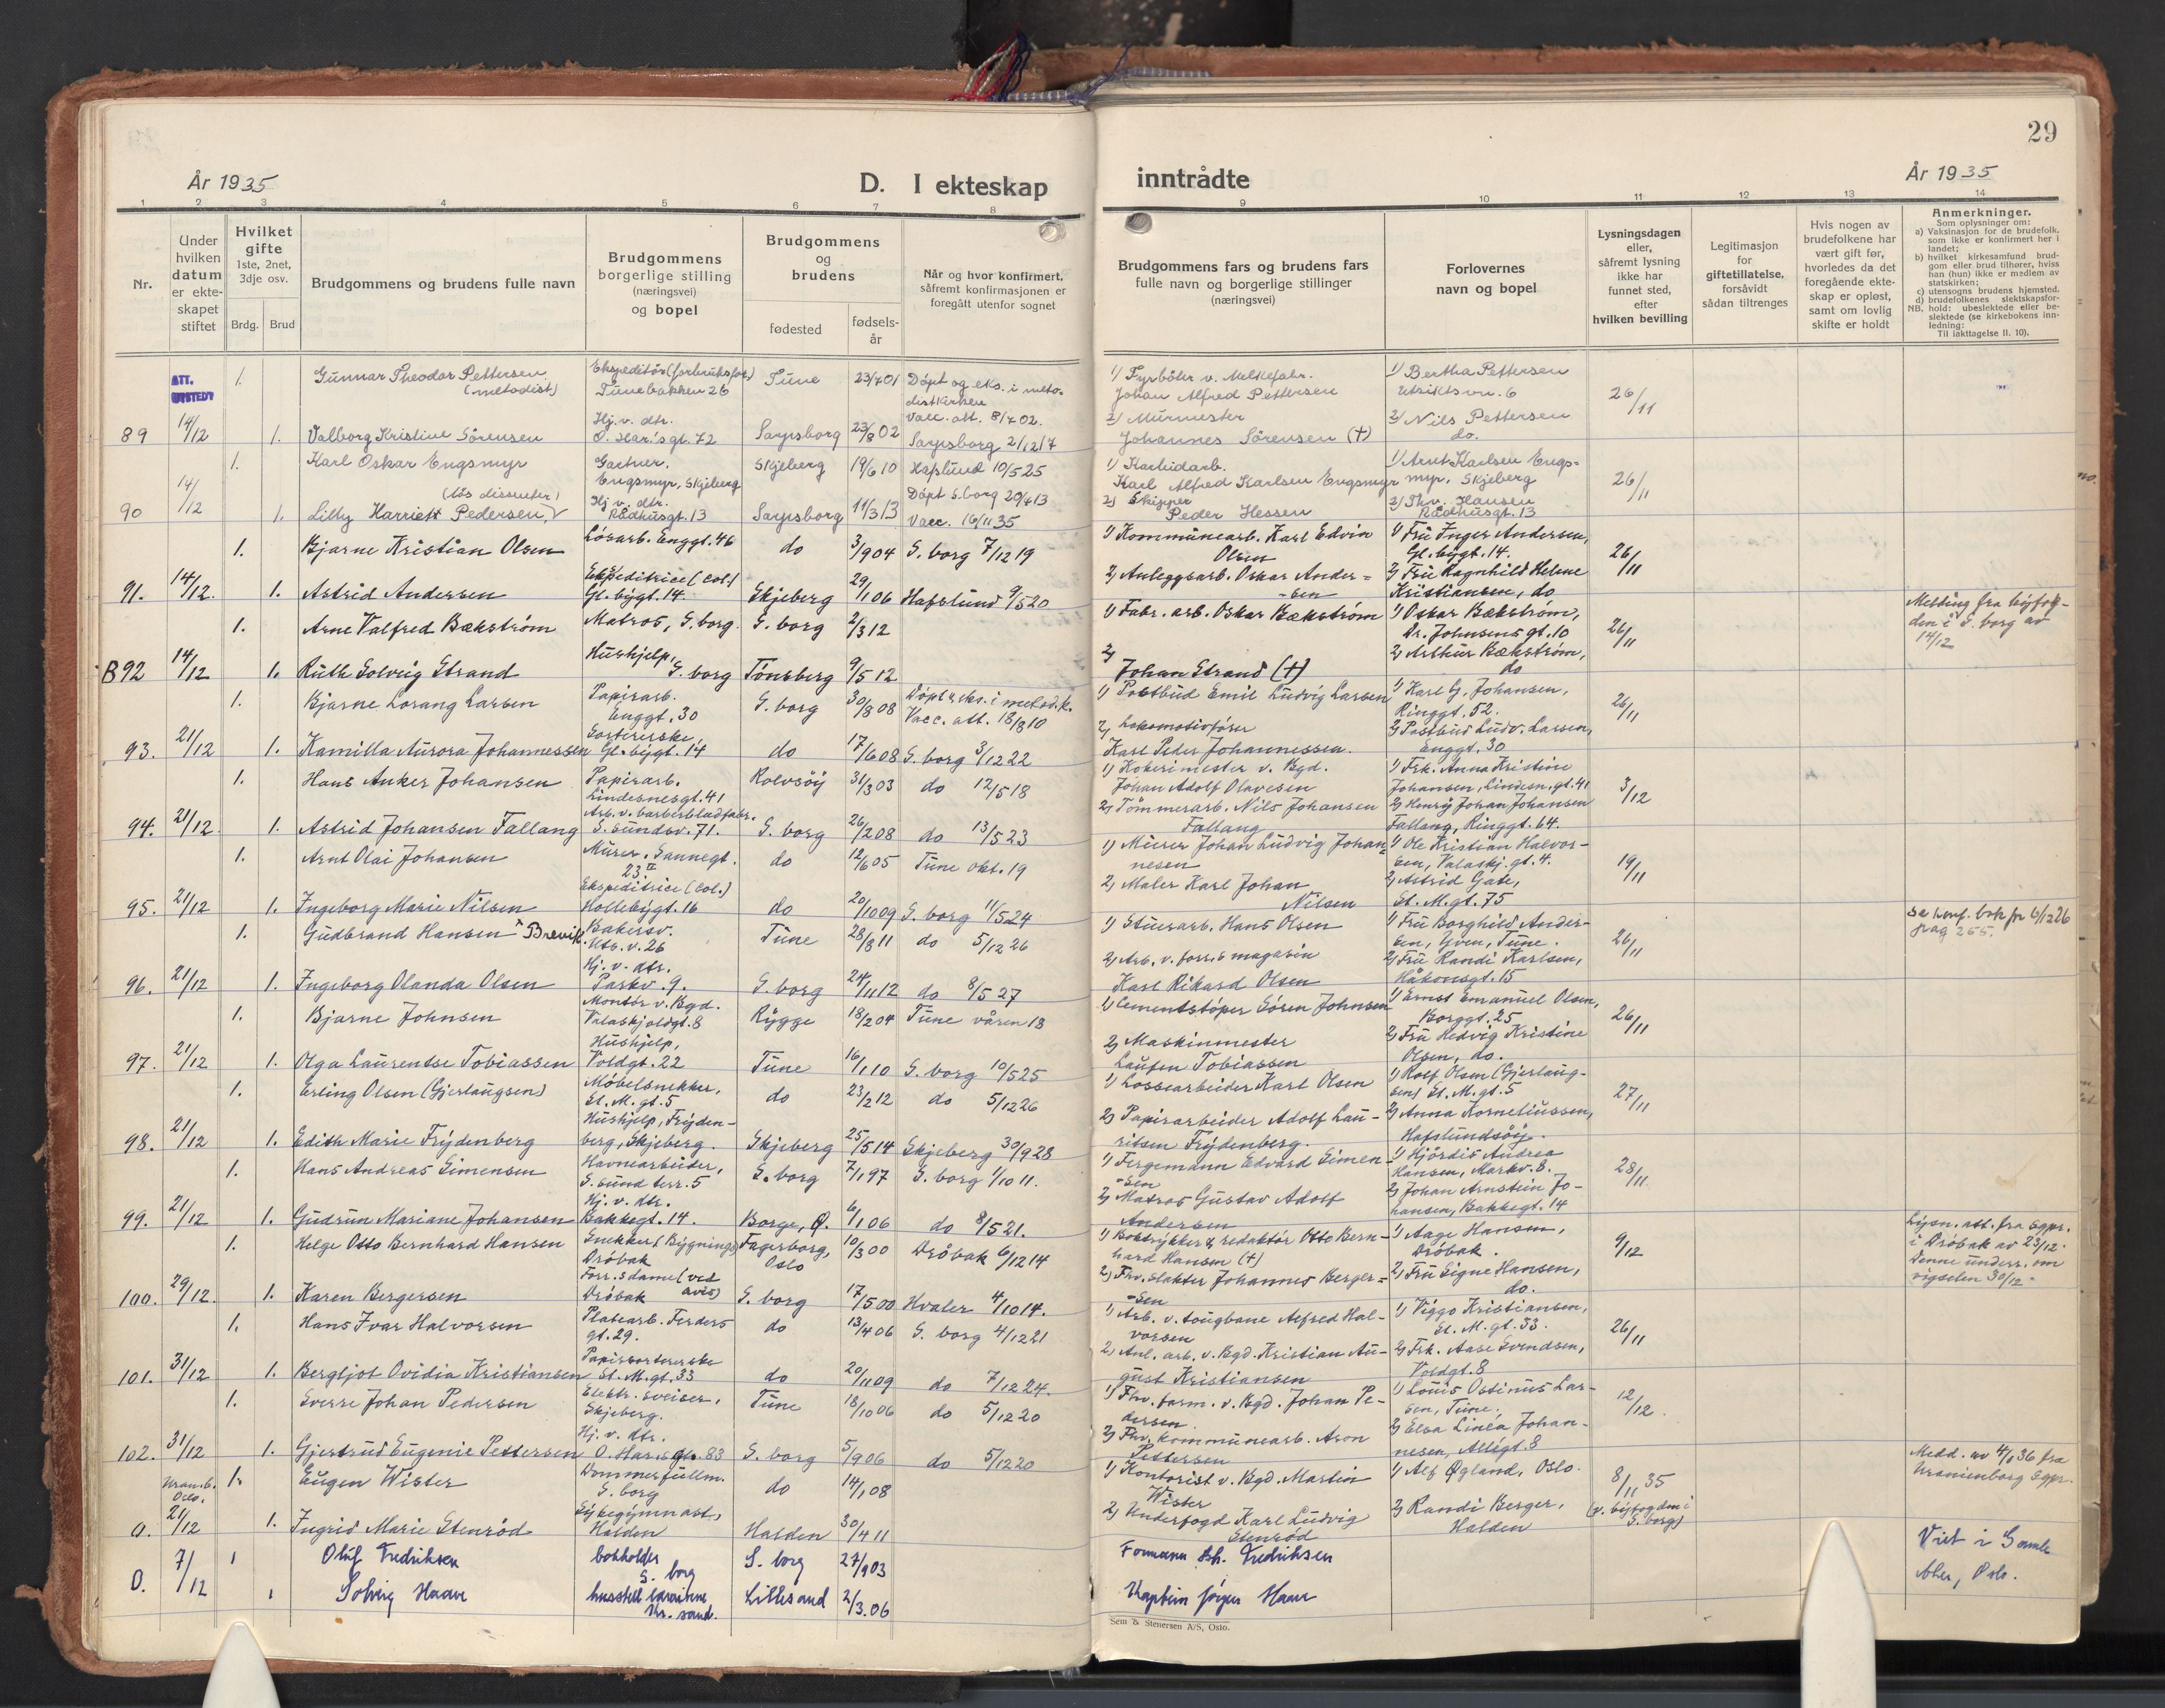 29
År 1935
D. I ekteskap
inntrådte
År 1935
1 2 3 4 5 6 7 8 9 10 11 12 13 14
Nr.
Under hvilken datum er ekte-
skapet stiftet
Hvilket gifte
1ste, 2net, 3dje osv.
Brdg. Brud
Brudgommens og brudens fulle navn
Brudgommens borgerlige stilling
(næringsvei)
og bopel
Brudgommens og brudens
fødested
fødsels-
år
Når og hvor konfirmert,
såfremt konfirmasjonen er
foregått utenfor sognet
Brudgommens fars og brudens fars
fulle navn og borgerlige stillinger
(næringsvei)
Forlovernes
navn og bopel
Lysningsdagen
eller,
såfremt lysning
ikke har
funnet sted,
efter
hvilken bevilling
Legitimasjon
for
giftetillatelse,
forsåvidt
sådan tiltrenges
Hvis nogen av
brudefolkene har
vært gift før,
hvorledes da det
foregående ekte-
skap er opløst,
samt om lovlig
skifte er holdt
Anmerkninger.
Som oplysninger om:
a) Vaksinasjon for de brudefolk,
som ikke er konfirmert her i
landet;
b) hvilket kirkesamfund brud-
gom eller brud tilhører, hviss
han (hun) ikke er medlem av
statskirken;
c) utensogns brudens hjemsted.
d) brudefolkenes slektskapsfor-
hold: ubeslektede eller be-
slektede (se kirkebokens inn-
ledning:
NB. Til iakttagelse II. 10).
ATT. UTSTEDT
1. Gunnar Theodor Pettersen (metodist) Ekspeditør (forbruksfor.) Tunebakken 26 Tune 23/7 01 Döpt og eks. i metodistkirken Vacc. att. 8/7 02.
1) Fyrböter v. Melkefabr. Johan Alfred Pettersen 1) Bertha Pettersen Utsiktsvn. 6 26/11
89 14/12 1. Valborg Kristine Sörensen Hj. v. dtr. O. Har.s gt. 72 Sarpsborg 23/8 02 Sarpsborg 2/12 17
2) Murmester Johannes Sörensen (+) 2) Nils Pettersen do.
1. Karl Oskar Engsmyr Gartner. Engsmyr, Skjeberg Skjeberg 19/6 10 Hafslund 10/5 25
1) Karbidarb. Karl Alfred Karlsen Engsmyr 1) Arnt Karlsen Engsmyr, Skjeberg 26/11
90 14/12 1. Lilly Harriett Pedersen (lös dissenter) Hj. v. dtr. Rådhusgt. 13 Sarpsborg 11/3 13 Döpt S.borg 20/4 13 Vacc. 16/11 35
2) Skipper Peder Hessen 2) Thv. Hansen Rådhusgt. 13
1. Bjarne Kristian Olsen Lösarb. Enggt. 46 do 3/9 04 S. borg 7/12 19
1) Kommunearb. Karl Edvin Olsen 1) Fru Inger Andersen, Gl. bygt. 14. 26/11
91. 14/12. 1. Astrid Andersen Ekspeditrice (col.) Gl. bygt. 14. Skjeberg 29/1 06 Hafslund 9/5 20
2) Anleggsarb. Oskar Andersen 2) Fru Ragnhild Helene Kristiansen, do
1. Arne Valfred Bækström Matros, S. borg. S. borg 2/3 12
1) Fabr. arb. Oskar Bækström 1) Oskar Bækström, Dr. Johnsens gt. 10 26/11 Melding fra byfogden i S. borg av 14/12
B 92 14/12 1. Ruth Solveig Strand Hushjelp, S. borg Tönsberg 9/5 12
2) Johan Strand (+) 2) Arthur Bækström, do
1. Bjarne Lorang Larsen Papirarb. Enggt. 30 S. borg 30/8 08 Döpt & eks. i metod.k. Vacc. att. 18/8 10
1) Postbud Emil Ludvig Larsen 1) Karl G. Johansen, Ringgt. 52. 26/11
93. 21/12 1. Kamilla Aurora Johannessen Sortererske, Gl. bygt. 14 do 17/6 08 S. borg 3/12 22
2) Lokomotivförer Karl Peder Johannessen. 2) Postbud Ludv. Larsen, Enggt. 30
1. Hans Anker Johansen Papirarb. Lindesnesgt. 41 Rolvsöy 31/3 03 do 12/5 18
1) Kokerimester v. Bgd. Johan Adolf Olavesen 1) Frk. Anna Kristine Johansen, Lindesn. gt. 41 3/12
94. 21/12. 1. Astrid Johansen Fallang Arb. v. barberbladfabr. S. sundsv. 71. S. borg 26/2 08 do 13/5 23
2) Tömmerarb. Nils Johansen Fallang 2) Henry Johan Johansen Fallang, Ringgt. 64.
1. Arnt Olai Johansen Murer. Sannegt. 23 II do 12/6 05 Tune okt. 19
1) Murer Johan Ludvig Johannesen 1) Ole Kristian Halvorsen, Valaskj. gt. 4. 19/11
95. 21/12 1. Ingeborg Marie Nilsen Ekspeditrice (col.) Hollebygt. 16 do 20/10 09 S. borg 11/5 24
2) Maler Karl Johan Nilsen 2) Astrid Gate, St. M. gt. 75
1. Gudbrand Hansen Brevik Bakersv. Uts. v. 26 Tune 28/8 11 do 5/12 26
1) Stuerarb. Hans Olsen 1) Fru Borghild Andersen, Yven, Tune. 26/11 Se konf. bok for 5/12 26 pag 255.
96. 21/12 1. Ingeborg Olanda Olsen Hj. v. dtr. Parkv. 9. S. borg 24/11 12 do 8/5 27
2) Arb. v. forr.s magasin Karl Rikard Olsen 2) Fru Randi Karlsen, Håkonsgt. 15
1. Bjarne Johnsen Montör v. Bgd. Valaskjoldgt. 8 Rygge 18/2 04 Tune våren 18
1) Cementstöper Sören Johnsen 1) Ernst Emanuel Olsen, Borggt. 25 26/11
97. 21/12 1. Olga Laurentse Tobiassen Hushjelp, Voldgt. 22 Tune 16/1 10 S. borg 10/5 25
2) Maskinmester Lauten Tobiassen 2) Fru Hedvig Kristine Olsen, do.
1. Erling Olsen (Gjerlaugsen) Möbelsnekker, St. M. gt. 5 do 23/2 12 do 5/12 26
1) Lossearbeider Karl Olsen 1) Rolf Olsen (Gjerlaugsen) St. M. gt. 5 27/11
98. 21/12 1. Edith Marie Frydenberg Hushjelp, Frydenberg, Skjeberg. Skjeberg 25/5 14 Skjeberg 30/9 28
2) Papirarbeider Adolf Lauritsen Frydenberg. 2) Anna Korneliussen, Hafslundsöy.
1. Hans Andreas Simensen Havnearbeider, S. sund terr. 5 S. borg 7/1 97 S. borg 1/10 11.
1) Fergemann Edvard Simensen 1) Hjördis Andrea Hansen, Markv. 8. 28/11
99. 21/12 1. Gudrun Mariane Johansen Hj. v. dtr. Bakkegt. 14. Borge, Ø. 6/1 06 do 8/5 21.
2) Matros Gustav Adolf Andersen 2) Johan Arnstein Johansen, Bakkegt. 14
1. Helge Otto Bernhard Hansen Snekker (Bygnings) Dröbak Fagerborg, Oslo 10/3 00 Dröbak 6/12 14
1) Boktrykker & redaktör Otto Bernhard Hansen (+) 1) Aage Hansen, Dröbak. 9/12 Lysn. att. fra sgpr. i Dröbak av 23/12. Denne underr. om vigselen 30/12.
100. 29/12. 1. Karen Bergersen Forr.sdame (ved avis) Dröbak S. borg 17/5 00 Hvaler 4/10 14.
2) Fhv. slakter Johannes Bergersen 2) Fru Signe Hansen, do.
1. Hans Ivar Halvorsen Platearb. Ferders gt. 29. do 13/4 06 S. borg 4/12 21
1) Arb. v. tougbane Alfred Halvorsen 1) Viggo Kristiansen, St. M. gt. 33. 26/11
101. 31/12 1. Bergljot Ovidia Kristiansen Papirsortererske St. M. gt. 33 do 20/11 09 do 7/12 24.
2) Anl. arb. v. Bgd. Kristian August Kristiansen 2) Frk. Aase Svendsen, Voldgt. 8
1. Sverre Johan Pedersen Elektr. sveiser, Skjeberg. Tune 18/10 06 do 5/12 20
1) Fhv. form. v. Bgd. Johan Pedersen. 1) Louis Ostinus Larsen, Tune. 12/12.
102. 31/12 1. Gjertrud Eugenie Pettersen Hj. v. dtr. O. Har.s gt. 83 S. borg 5/9 06 do 5/12 20
2) Fhv. kommunearb. Aron Pettersen 2) Elsa Linéa Johannesen, Allégt. 8
Uranb. Oslo. 1. Eugen Wister Dommerfullm. S. borg do 14/1 08
1) Kontorist v. Bgd. Martin Wister 1) Alf Øgland, Oslo. 8/11 35 (v. byfogden i S. borg) Medd. av 4/1 36 fra Uranienborg sgpr.
O. 21/12 1. Ingrid Marie Stenröd Sykegymnast, Halden Halden 30/4 11
2) Underfogd Karl Ludvig Stenröd 2) Randi Berger, Halden
O. 7/12 1 Oluf Fredriksen bokholder S. borg S. borg 27/9 03 Formann Fredriksen Viet i Gamle Aker, Oslo.
1 Solveig Haave Kr. sand. Lillesand 2/3. 06 Kaptein Haave
Sem & Stenersen A/S, Oslo.